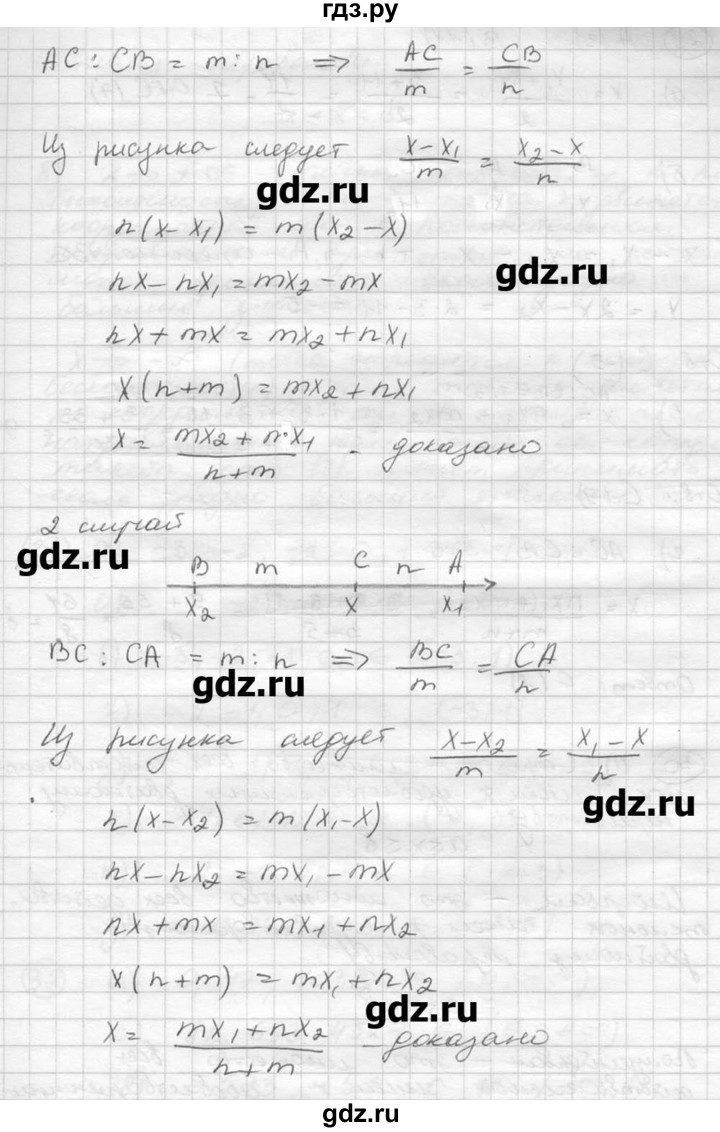 гдз.ру
AC : CB = m : n ⇒ AC/m = CB/n
Из рисунка следует (x-x₁)/m = (x₂-x)/n
gdz.ru
n(x-x₁) = m(x₂-x)
gdz.ru
nx-nx₁=mx₂-mx
nx+mx=mx₂+nx₁
x(n+m)=mx₂+nx₁
x= (mx₂+n·x₁)/(n+m) - доказано
2 случай
gdz.ru
B m C n A
x₂ x x₁
BC : CA = m : n ⇒ BC/m = CA/n
gdz.ru
Из рисунка следует (x-x₂)/m = (x₁-x)/n
gdz.ru
n(x-x₂)=m(x₁-x)
nx-nx₂=mx₁-mx
nx+mx=mx₁+nx₂
x(n+m)=mx₁+nx₂
gdz.ru
x= (mx₁+nx₂)/(n+m) - доказано
gdz.ru